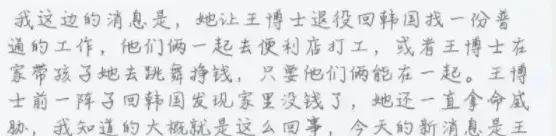 我这边的消息是，她让王博士退役回韩国找一份普
通的工作，他们俩一起去便利店打工，或者王博士在
家带孩子她去跳舞挣钱，只要他们俩能在一起。王博
士前一阵子回韩国发现家里没钱了，她还一直拿命威
胁，我知道的大概就是这么回事，今天的新消息是王